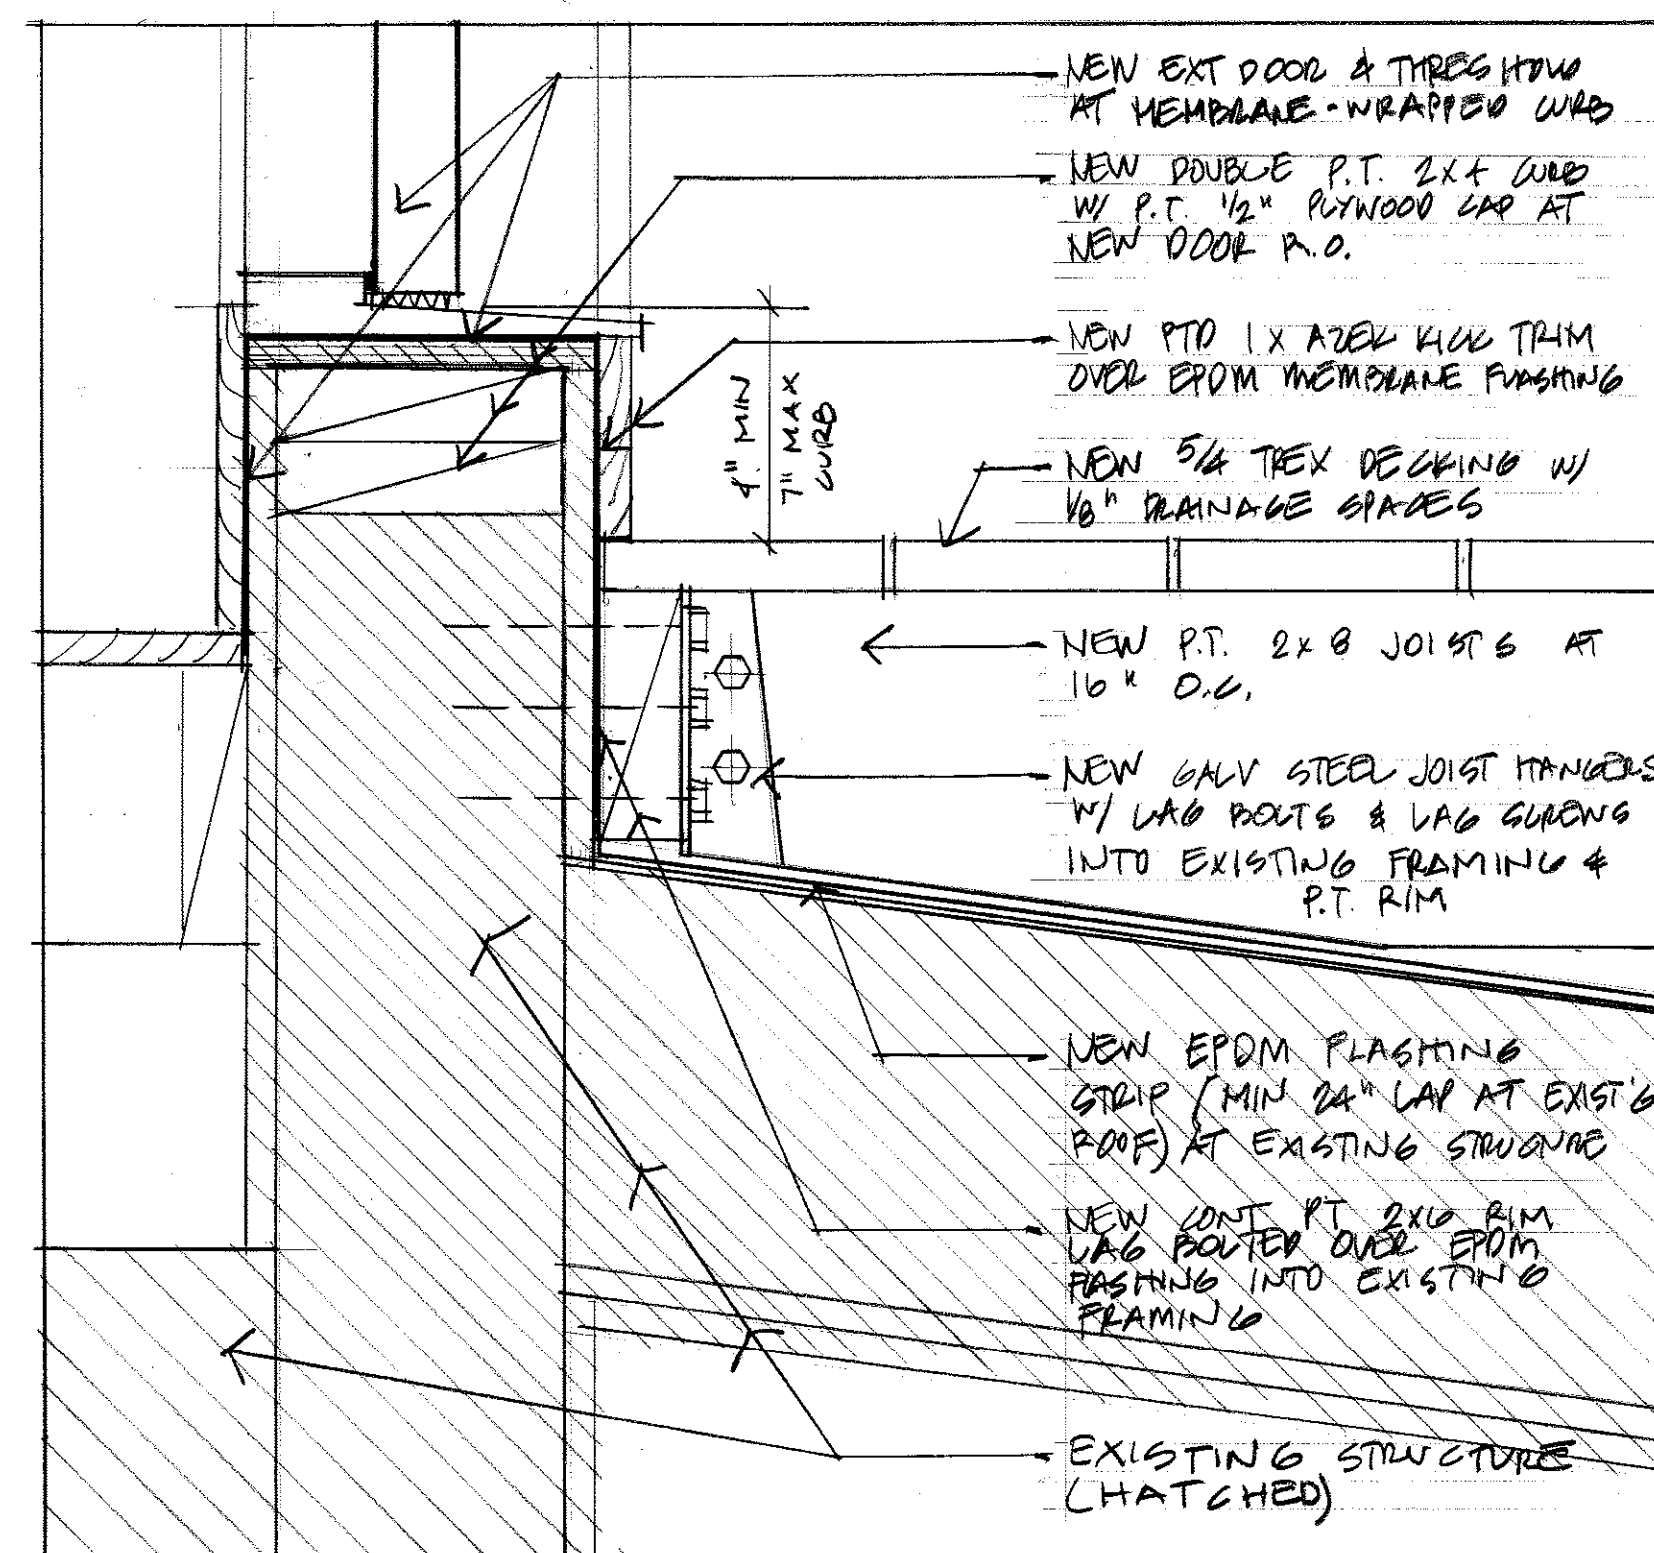 NEW EXT DOOR & THRESHOLD
AT MEMBRANE-WRAPPED CURB
NEW DOUBLE P.T. 2X4 CURB
W/ P.T. 1/2" PLYWOOD CAP AT
NEW DOOR R.O.
NEW PTD 1X AZEK KICK TRIM
OVER EPDM MEMBRANE FLASHING
4" MIN
7" MAX
CURB
NEW 5/4 TREX DECKING W/
1/8" DRAINAGE SPACES
NEW P.T. 2X8 JOISTS AT
16" O.C.
NEW GALV STEEL JOIST HANGERS
W/ LAG BOLTS & LAG SCREWS
INTO EXISTING FRAMING &
P.T. RIM
NEW EPDM FLASHING
STRIP (MIN 24" LAP AT EXIST'G
ROOF) AT EXISTING STRUCTURE
NEW CONT PT 2X6 RIM
LAG BOLTED OVER EPDM
FLASHING INTO EXISTING
FRAMING
EXISTING STRUCTURE
(HATCHED)